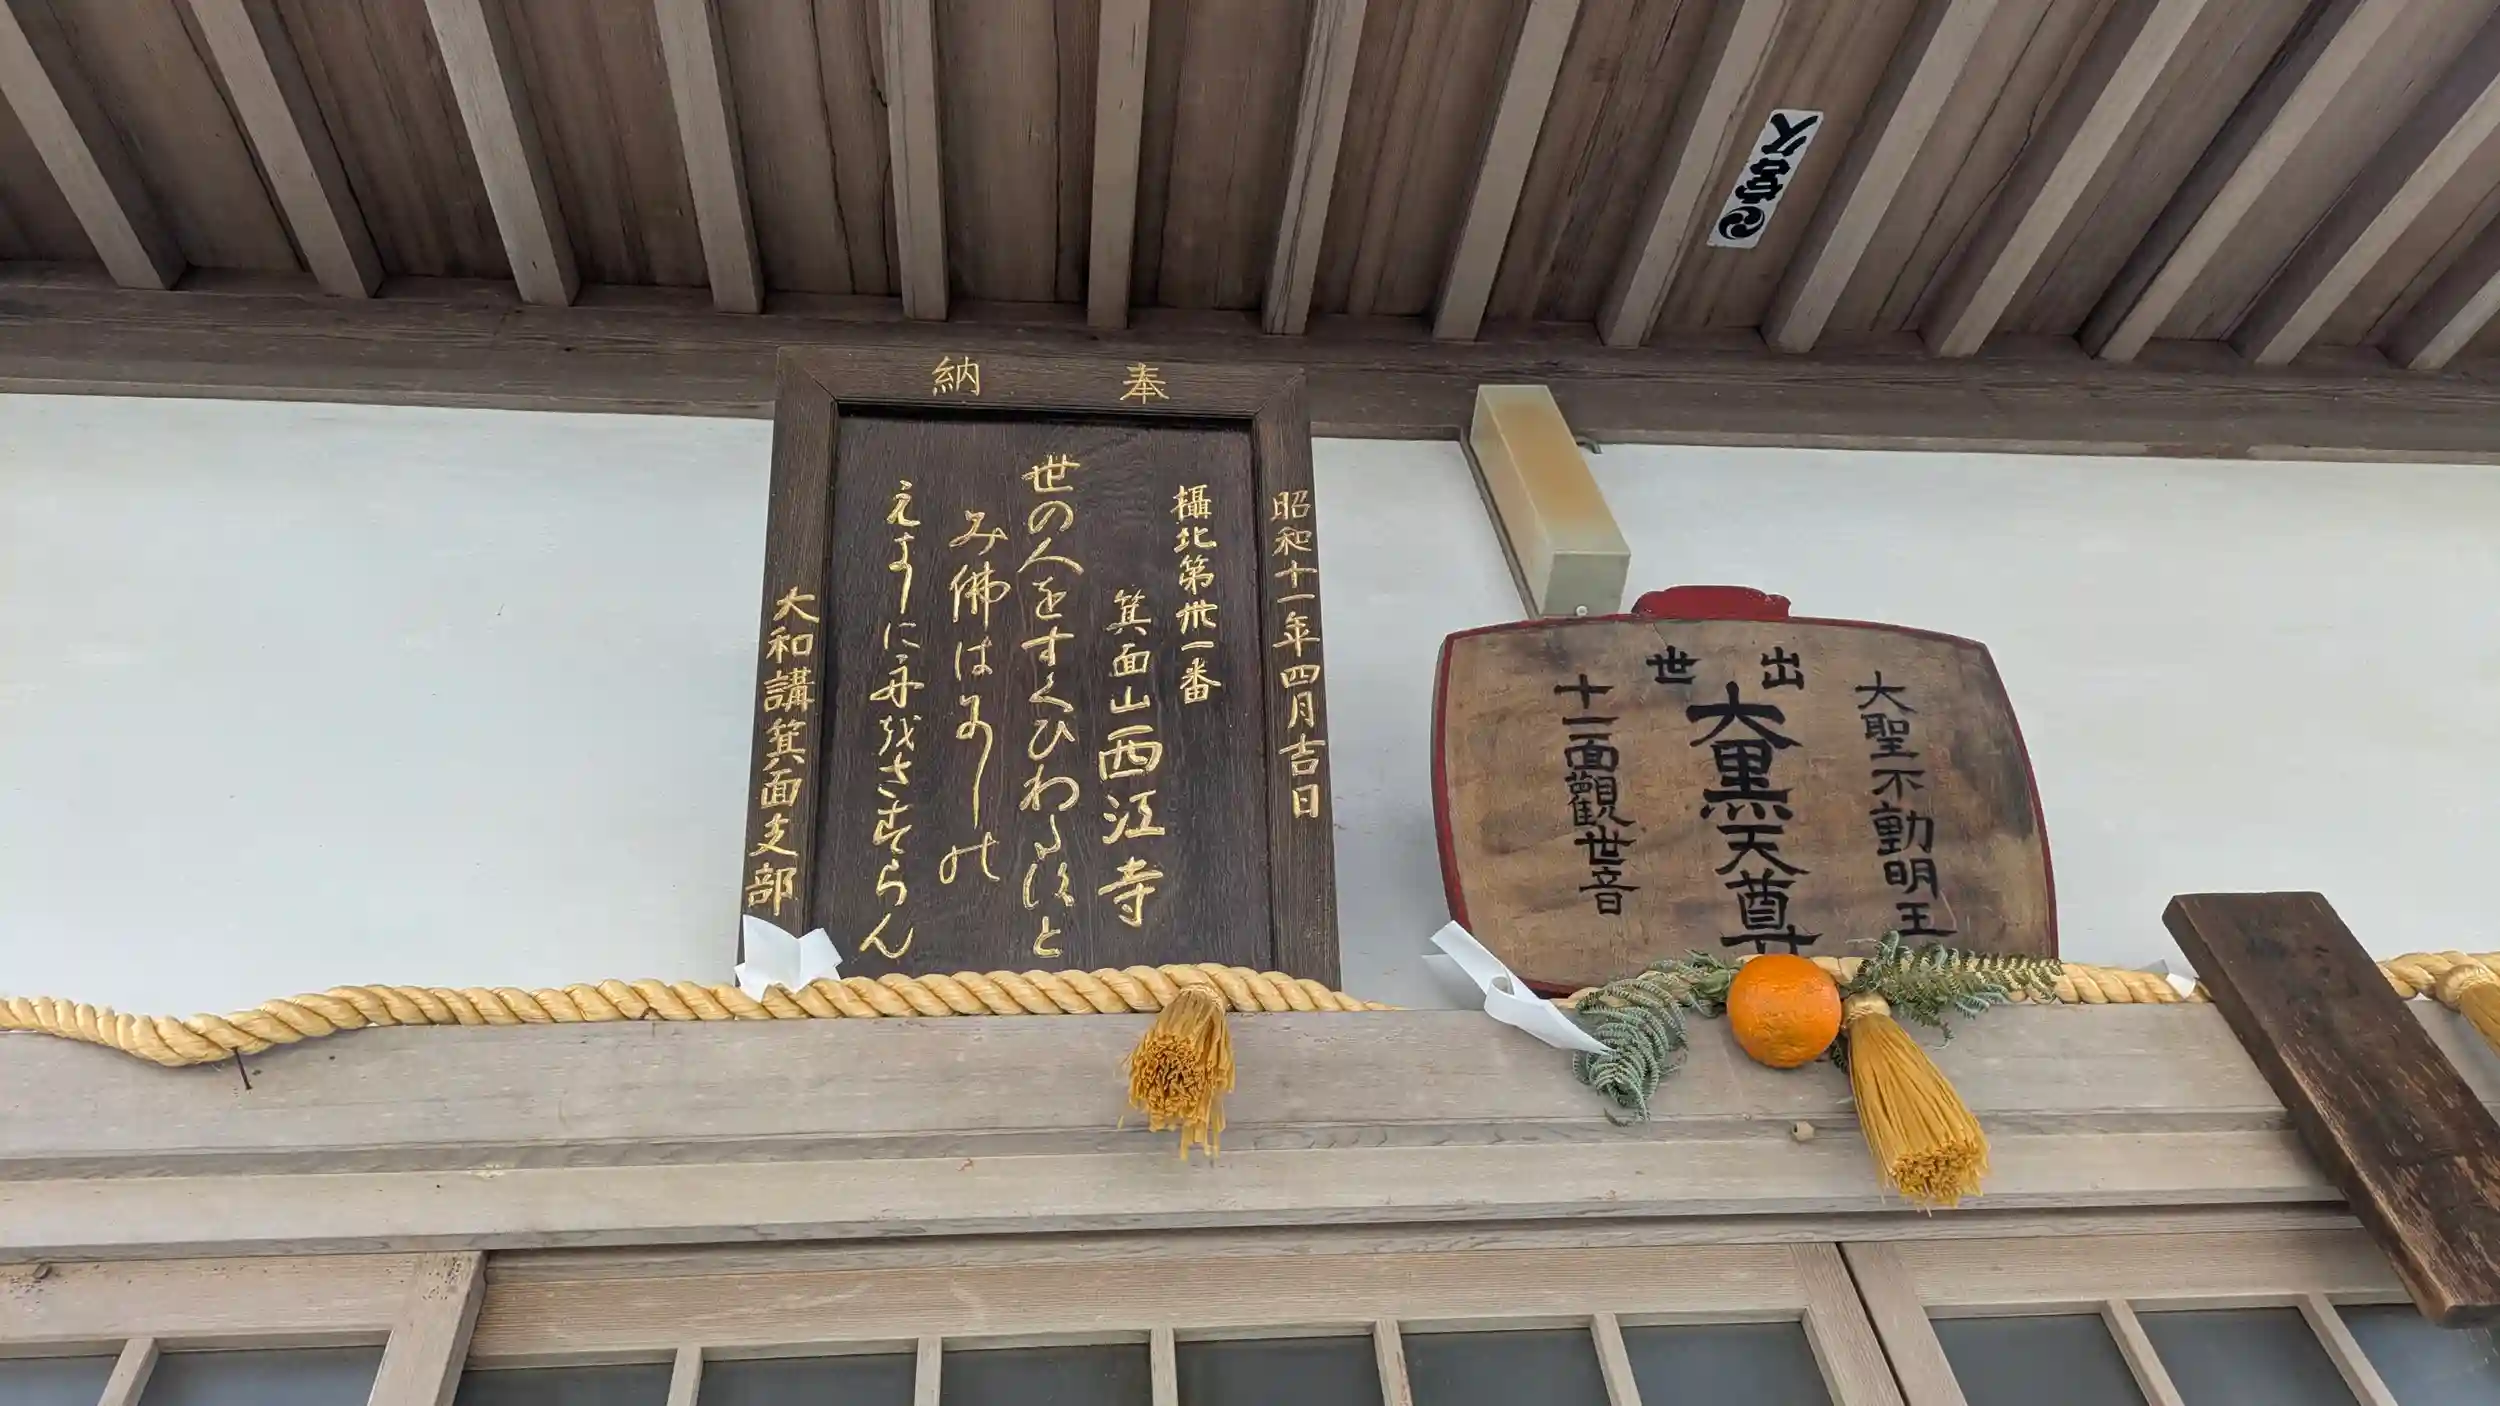 奉納
昭和十一年四月吉日
攝北第卅一番
箕面山西江寺
世の人をすくひわ と
み佛は
に舟越さ らん
大和講箕面支部
出世
大聖不動明王
大黒天尊
十一面觀世音